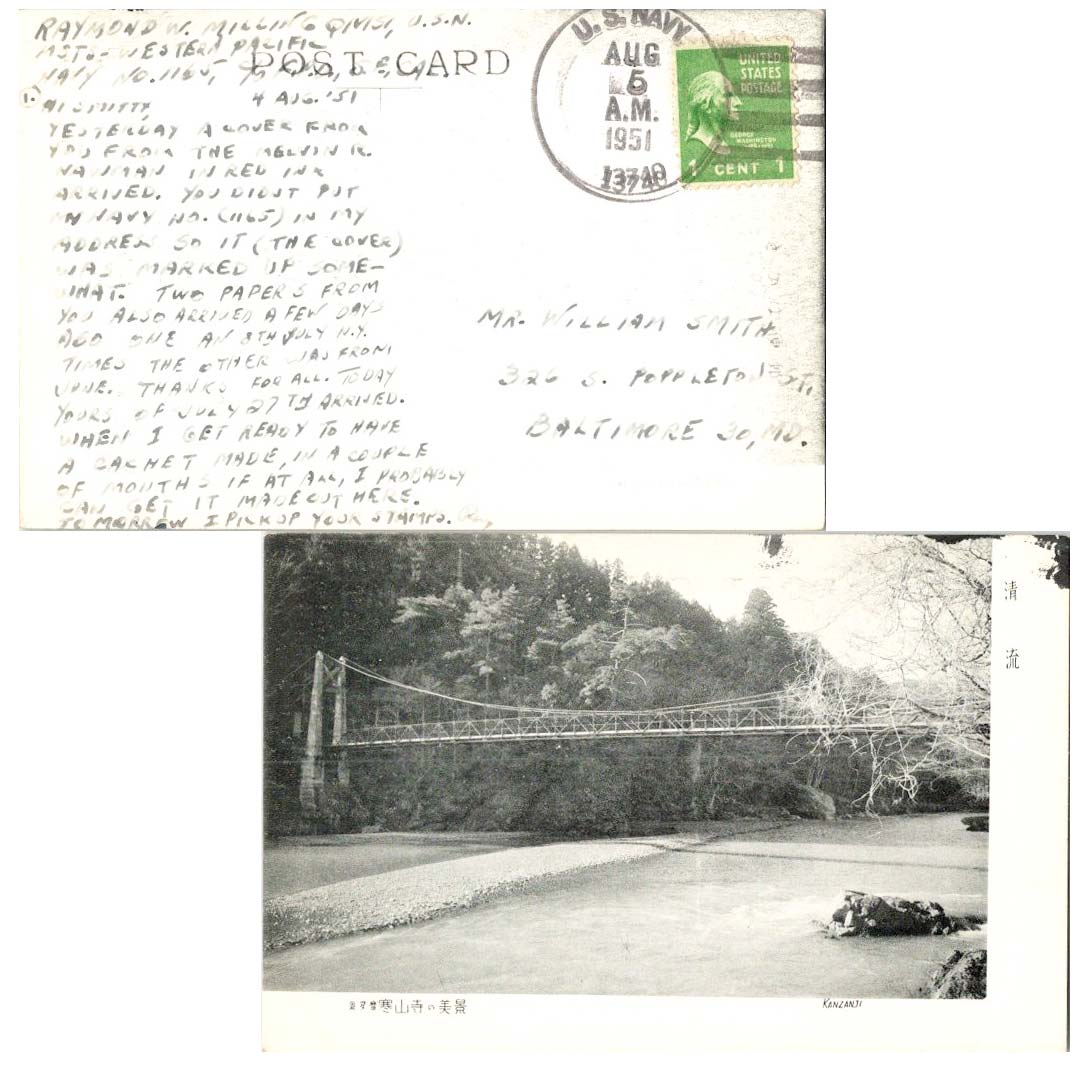 RAYMOND W. MILLING QMS1, U.S.N.
MSTS-WESTERN PACIFIC
NAVY NO. 1165,
POST CARD
4 AUG. '51
1.)
HI SMITTY,
YESTERDAY A COVER FROM
YOU FROM THE MELVIN R.
NAWMAN IN RED INK
ARRIVED. YOU DIDNT PUT
MY NAVY NO. (1165) IN MY
ADDRESS SO IT (THE COVER)
WAS MARKED UP SOME-
WHAT. TWO PAPERS FROM
YOU ALSO ARRIVED A FEW DAYS
AGO ONE AN 8TH JULY N.Y.
TIMES THE OTHER WAS FROM
JUNE. THANKS FOR ALL. TODAY
YOURS OF JULY 27TH ARRIVED.
WHEN I GET READY TO HAVE
A CACHET MADE, IN A COUPLE
OF MONTHS IF AT ALL, I PROBABLY
CAN GET IT MADE OUT HERE.
TOMORROW I PICK UP YOUR STAMPS.
U.S. NAVY
AUG
5
A.M.
1951
13740
UNITED
STATES
POSTAGE
GEORGE
WASHINGTON
1 CENT 1
MR. WILLIAM SMITH
326 S. POPPLETON ST,
BALTIMORE 30, MD.
清流
奥多摩 寒山寺の美景
KANZANJI